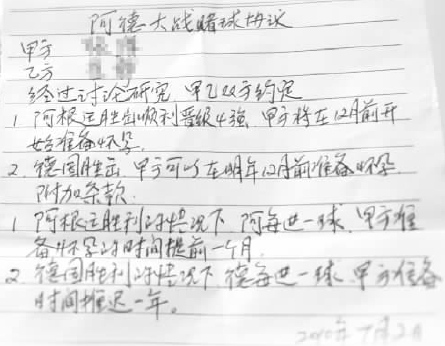 阿德大战赌球协议
甲方
乙方
经过讨论研究 甲乙双方约定
1 阿根廷胜出顺利晋级4强,甲方将在12月前开
始准备怀孕.
2. 德国胜出 甲方可以在明年12月前准备怀孕.
附加条款.
1 阿根廷胜利的情况下 阿每进一球,甲方准
备怀孕的时间提前一个月.
2. 德国胜利的情况下 德每进一球 甲方准备
时间推迟一年。
2010年7月2日